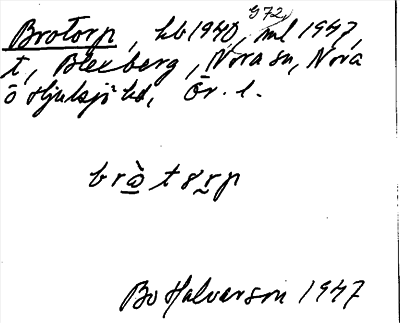 Brotorp, kb 1940, 972, ml 1947,
t, Blexberg, Nora sn, Nora
o Hjulsjö hd, Ör. l.
bròtorp
Bo Halvarson 1947